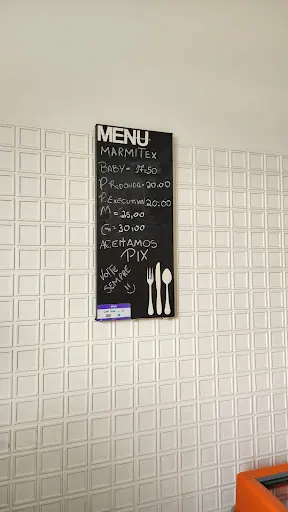 MENU
MARMITEX
BABY = 17:50
P. REDONDA = 20.00
P. EXECUTIVA 20:00
M = 25,00
G = 30,00
ACEITAMOS
PIX
VOLTE
SEMPRE